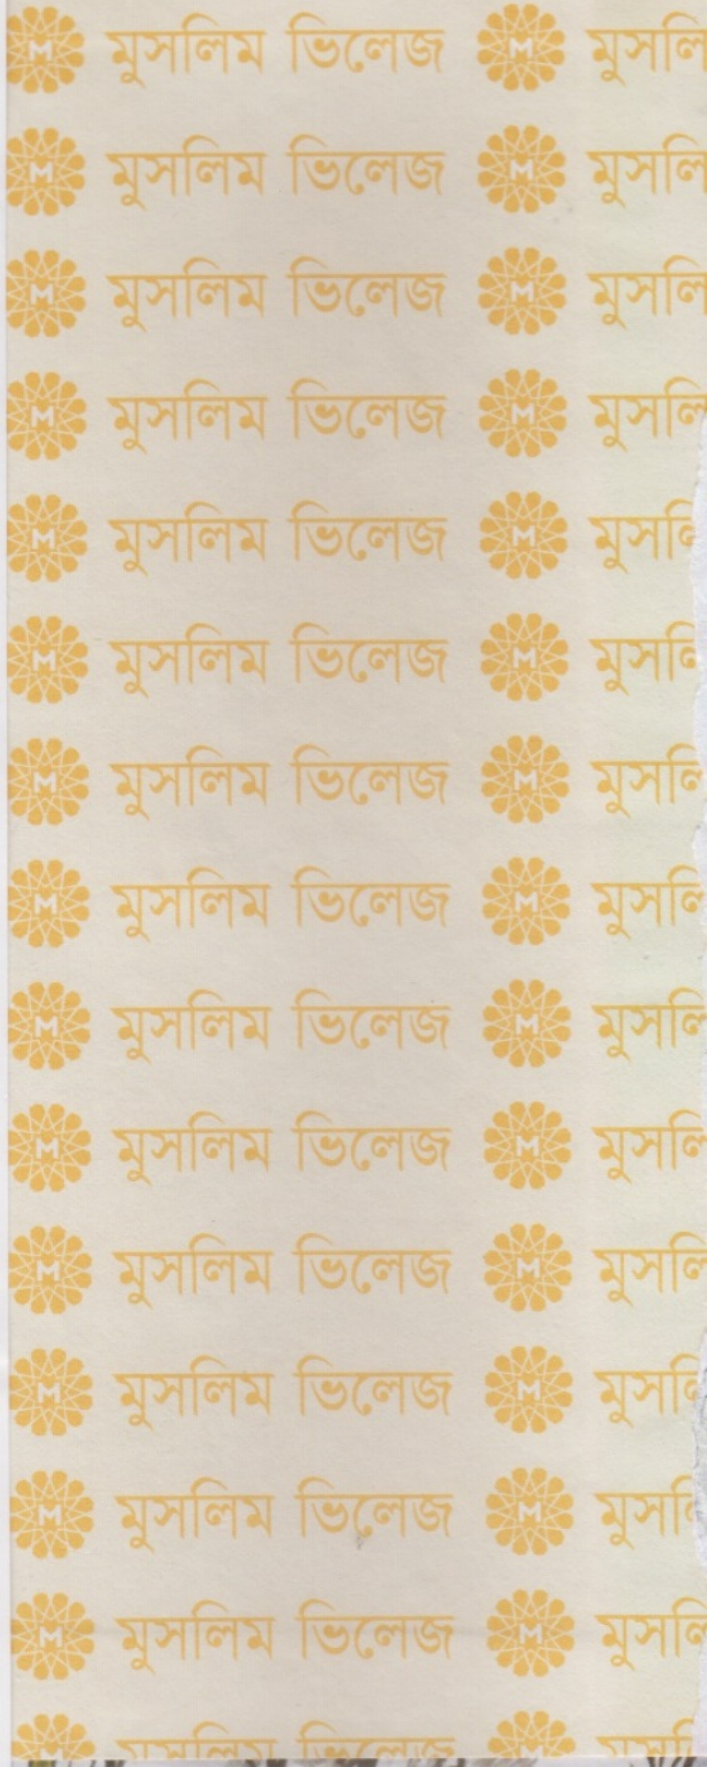 M মুসলিম ভিলেজ M মুসলি
M মুসলিম ভিলেজ M মুসলি
M মুসলিম ভিলেজ M মুসলি
M মুসলিম ভিলেজ M মুসলি
M মুসলিম ভিলেজ M মুসলি
M মুসলিম ভিলেজ M মুসলি
M মুসলিম ভিলেজ M মুসলি
M মুসলিম ভিলেজ M মুসলি
M মুসলিম ভিলেজ M মুসলি
M মুসলিম ভিলেজ M মুসলি
M মুসলিম ভিলেজ M মুসলি
M মুসলিম ভিলেজ M মুসলি
M মুসলিম ভিলেজ M মুসলি
M মুসলিম ভিলেজ M মুসলি